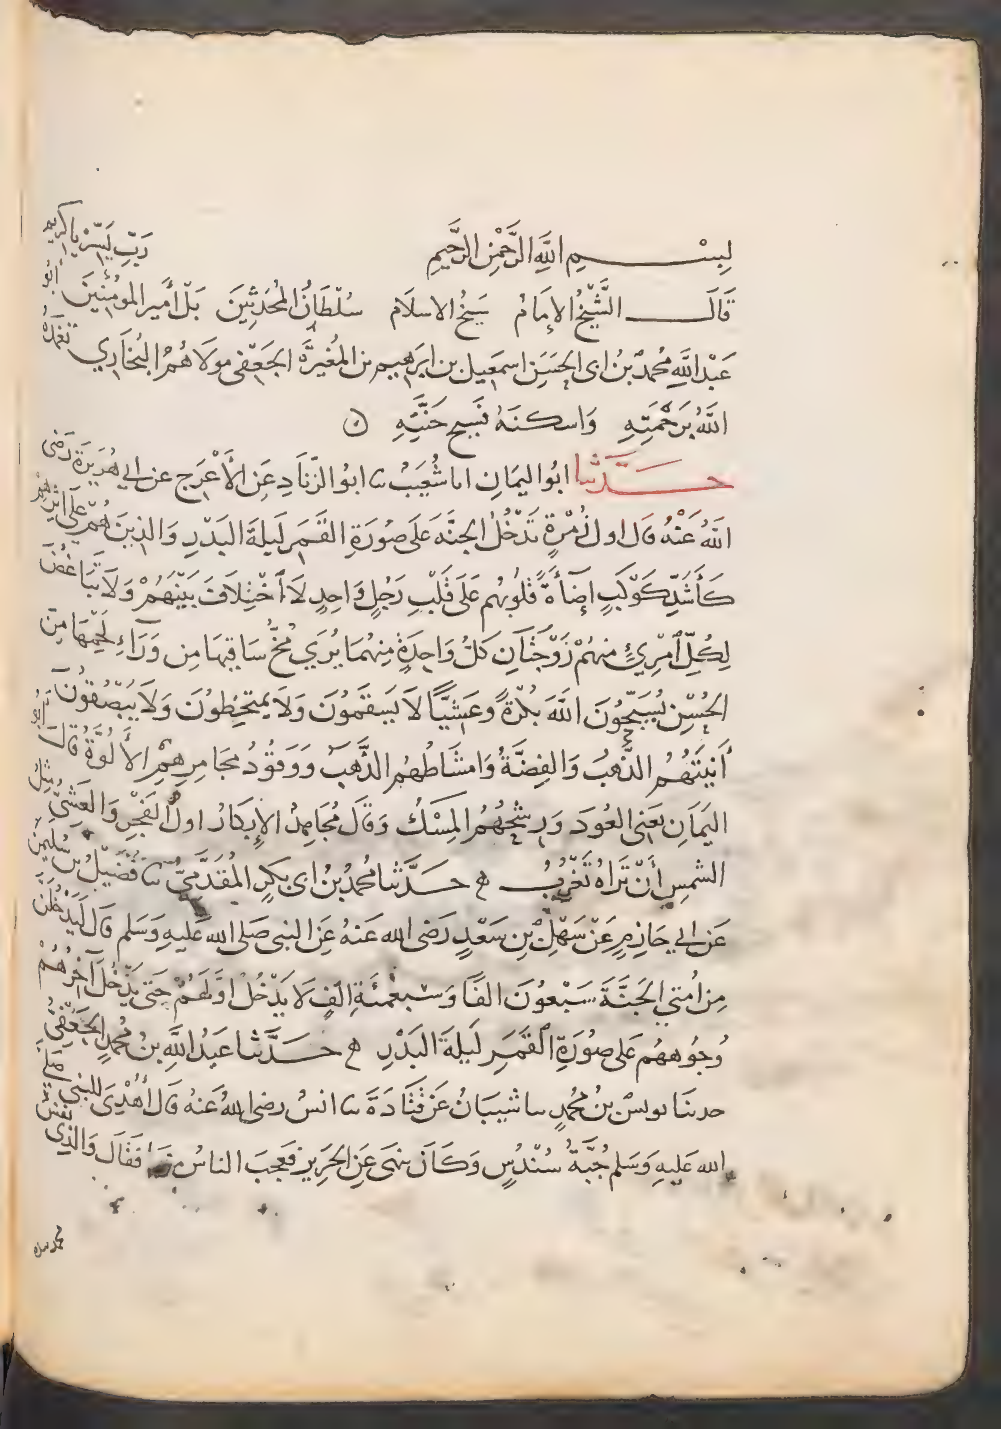 بِسْمِ اللَّهِ الرَّحْمٰنِ الرَّحِيمِ رَبِّ يَسِّرْ يا كريم
قَالَ الشَّيْخُ الإِمَامُ شيخُ الاسلَامِ سُلْطَانُ المُحَدِّثِينَ بَلْ أَمِيرِ المُؤْمِنِينَ أبُو
عَبْدِ اللَّهِ مُحَمَّدُ بْنُ ابى الحَسَنِ اسمَعِيل بن ابرَهِيم بن المُغِيرَةِ الجَعْفِى مولَاهُمْ البُخَارِي تغمدهُ
اللَّهُ بِرَحْمَتِهِ وَاسكنَهُ فسيح جَنَّتِهِ
حَدَّثنا ابُو اليمَانِ انا شُعَيبٌ نا ابو الزّنَادِ عَنِ الأَعْرَجِ عن ابي هُرَيرَةَ رَضى
اللَّهُ عَنْهُ قَالَ اول زُمْرَةٍ تَدْخُلُ الجنَّةَ عَلى صُورَةِ القَمَرِ لَيلَةَ البَدْرِ وَالذِينَ هُمْ عَلَى اثرِهِمْ
كَأَشَدِّ كَوْكَبٍ إِضَاءَةً قُلُوبُهُم عَلَى قَلْبِ رَجُلٍ وَاحِدٍ لَا اخْتِلَافَ بَيْنَهُمْ وَلَا تَبَاغُضَ
لِكُلِّ امْرِئٍ مِنهُمْ زَوْجَتَانِ كُلُّ وَاحِدَةٍ مِنهُمَا يُرَي مُخُّ سَاقِهَا مِن وَرَآءِ لَحْمِهَا مِنَ
الحُسْنِ يُسَبِّحُونَ اللَّهَ بُكْرَةً وعَشِيًّا لَا يَسقَمُونَ وَلَا يمتَخِطُونَ وَلَا يَبْصُقُونَ
أَنِيَتُهُمُ الذَّهَبُ وَالفِضَّةُ وَامشَاطُهُم الذَّهَبُ وَوَقُودُ مجَامِرِهِمِ الأَلُوَّةُ قَالَ ابُو
اليَمَانِ يَعْنِى العُودَ وَرشْحُهُمُ المِسْكُ وَقَالَ مُجَاهِدٌ الإِبكَارُ اولُ الفَجْرِ وَالعَشِيُّ مَيْلُ
الشمسِ أَنْ تَرَاهُ تَغْرُبُ ه حَدَّثنا مُحمَّدُ بْنُ ابى بَكرٍ المُقَدَّمِيُّ نا فُضَيْلُ بن سُلَيمن
عَن ابي حَازِمٍ عَنْ سَهْلِ بْنِ سَعْدٍ رَضى الله عَنهُ عَنِ النبى صَلى الله عَلَيهِ وَسَلم قَالَ لَيَدْخُلَنَّ
مِن اُمتي الجَنَّةَ سَبْعُونَ الفًا وَسبعمئَةِ الفٍ لَا يَدْخُلُ اوَّلُهُمْ حَتى يَدْخُلَ آخِرُهُمْ
وُجُوهُهُم عَلى صُورَةِ القَمَرِ لَيلَةَ البَدْرِ ه حَدَّثنا عَبدُ اللَّهِ بنُ مُحَمدٍ الجُعْفِىُّ
حدثنا يونسُ بنُ مُحمدٍ نا شَيبَانُ عَن قَتَادَةَ نا انسٌ رضى اللهُ عَنهُ قَالَ أُهْدِىَ للنبى صَلى
الله عَلَيهِ وَسَلم جُبَّةُ سُنْدُسٍ وَكَانَ ينهَى عَنِ الحَرِيرِ فعَجِبَ الناسُ منها فَقَالَ وَالذِى نفسُ
محمد بيده